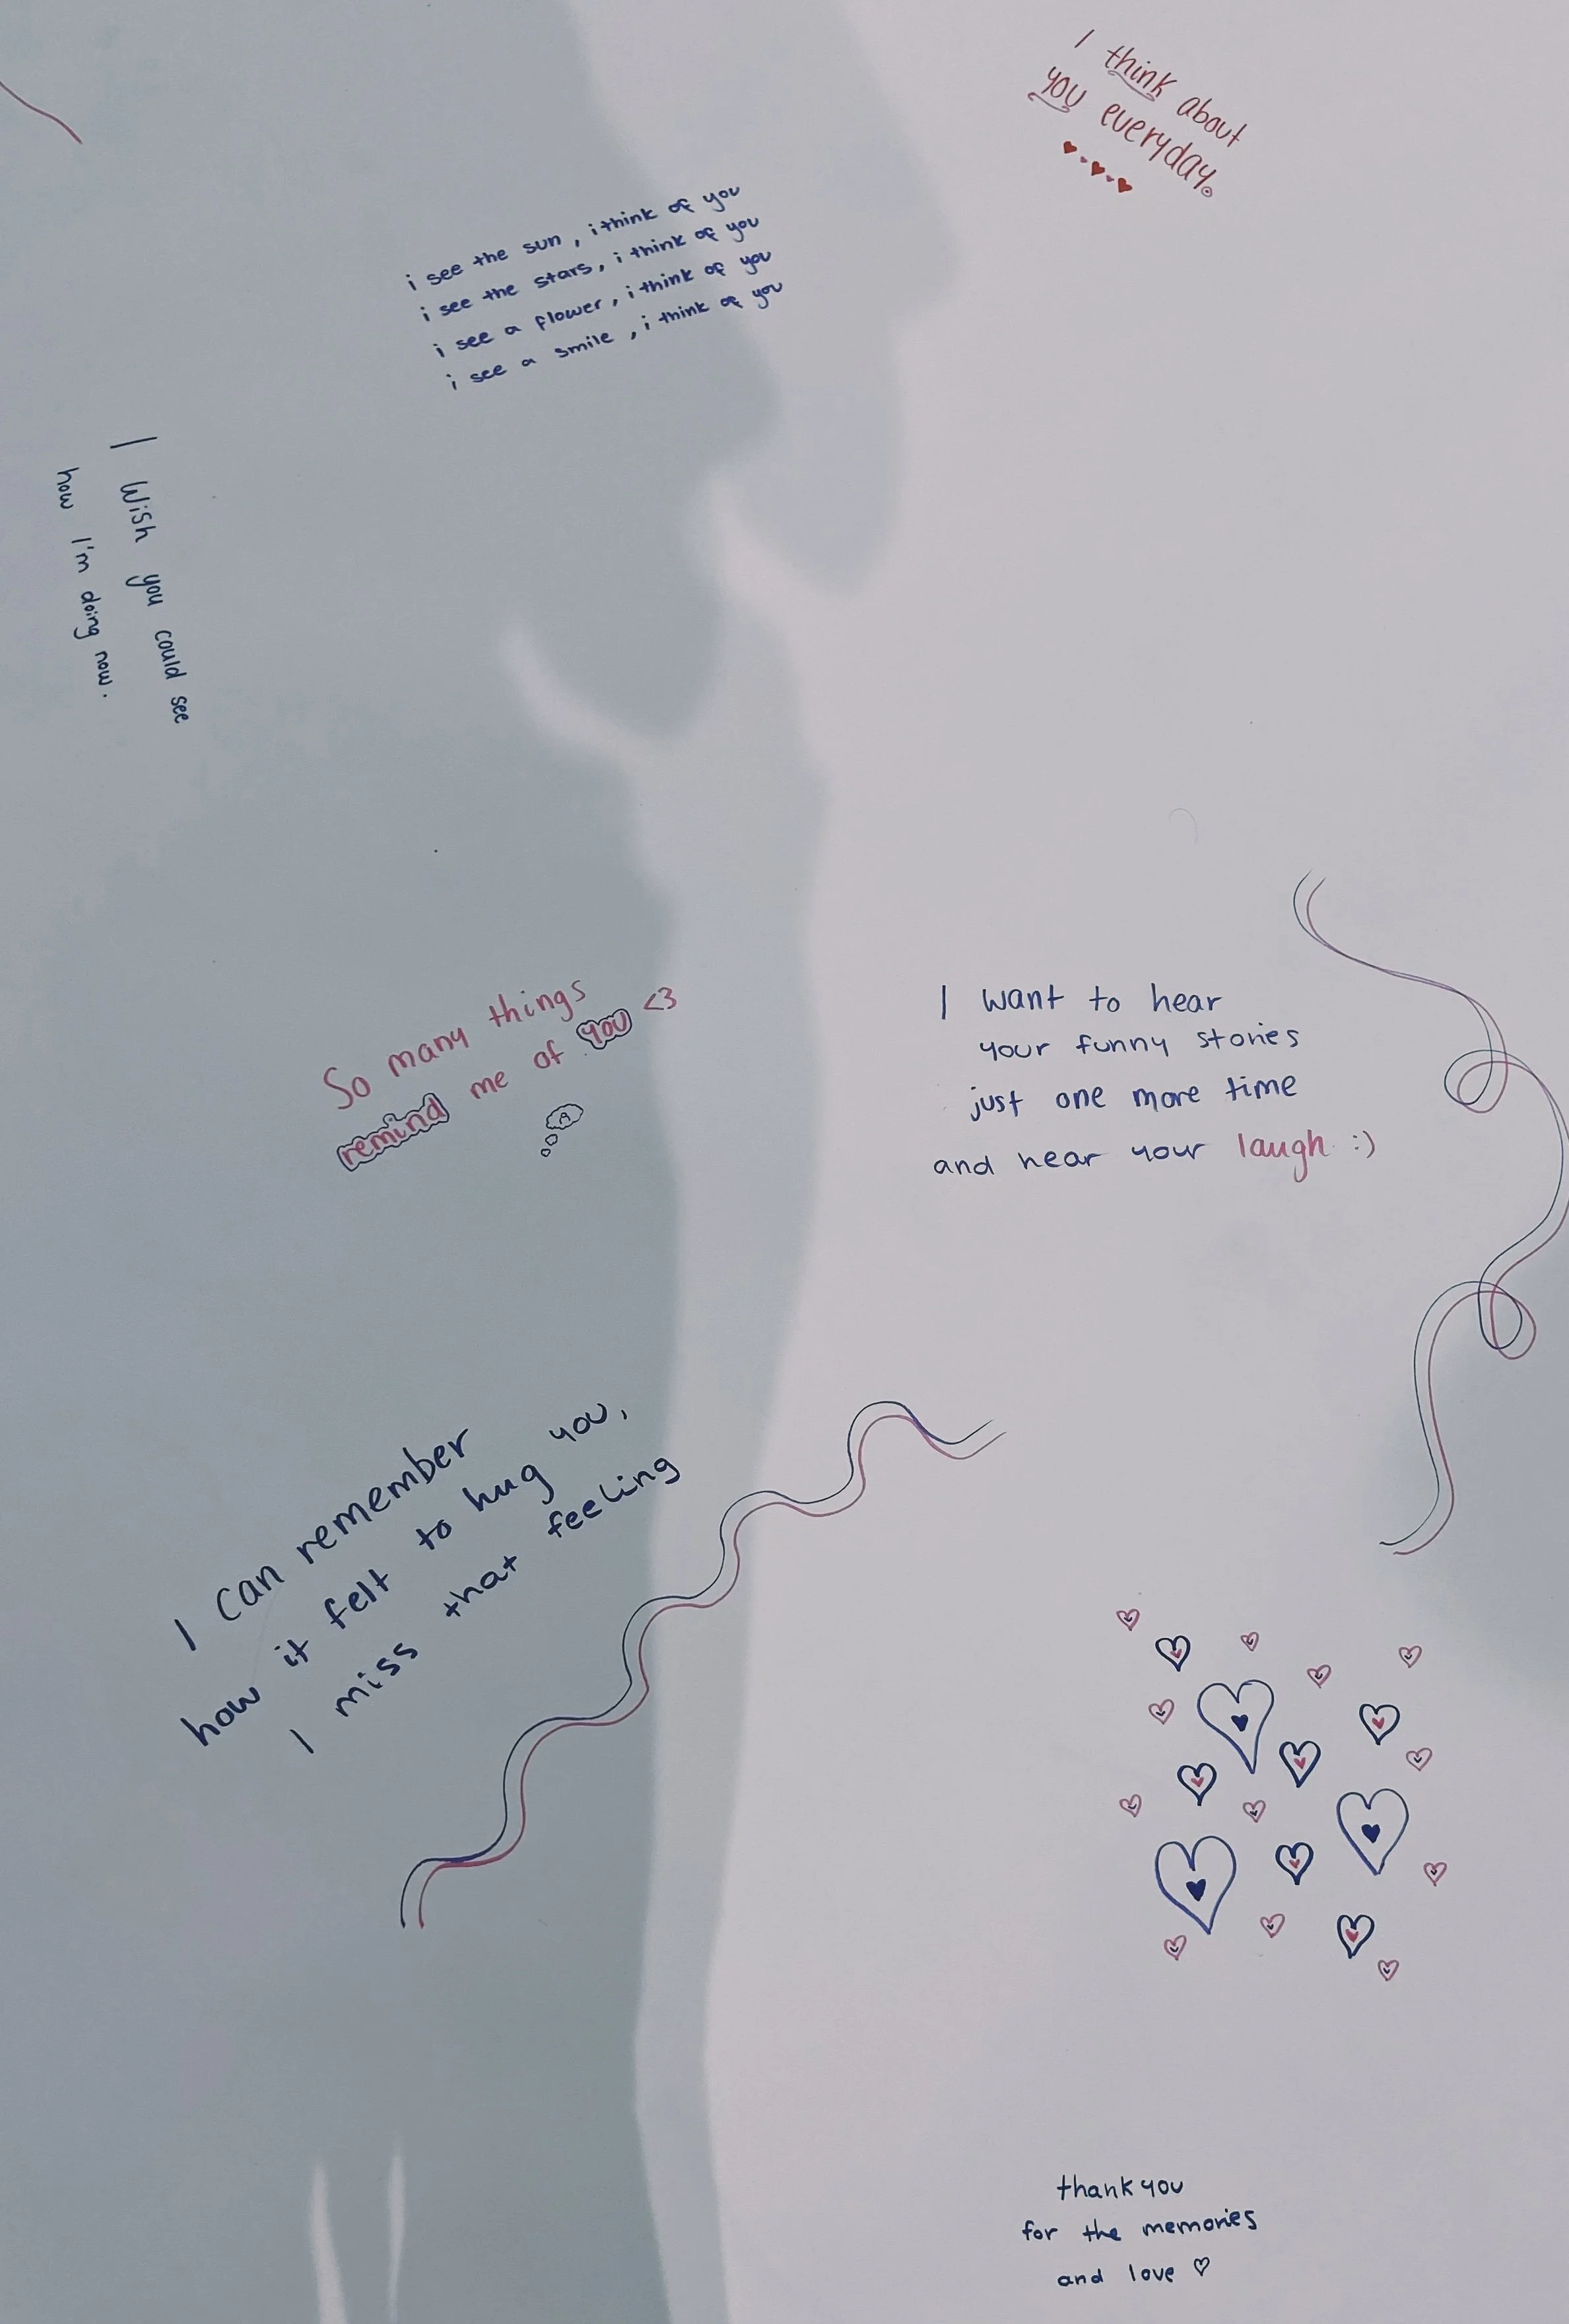 I think about
you everyday.
i see the sun, i think of you
i see the stars, i think of you
i see a flower, i think of you
i see a smile, i think of you
I wish you could see
how I'm doing now.
So many things
remind me of you <3
I want to hear
your funny stories
just one more time
and hear your laugh :)
I can remember
how it felt to hug you,
I miss that feeling
thank you
for the memories
and love ♡